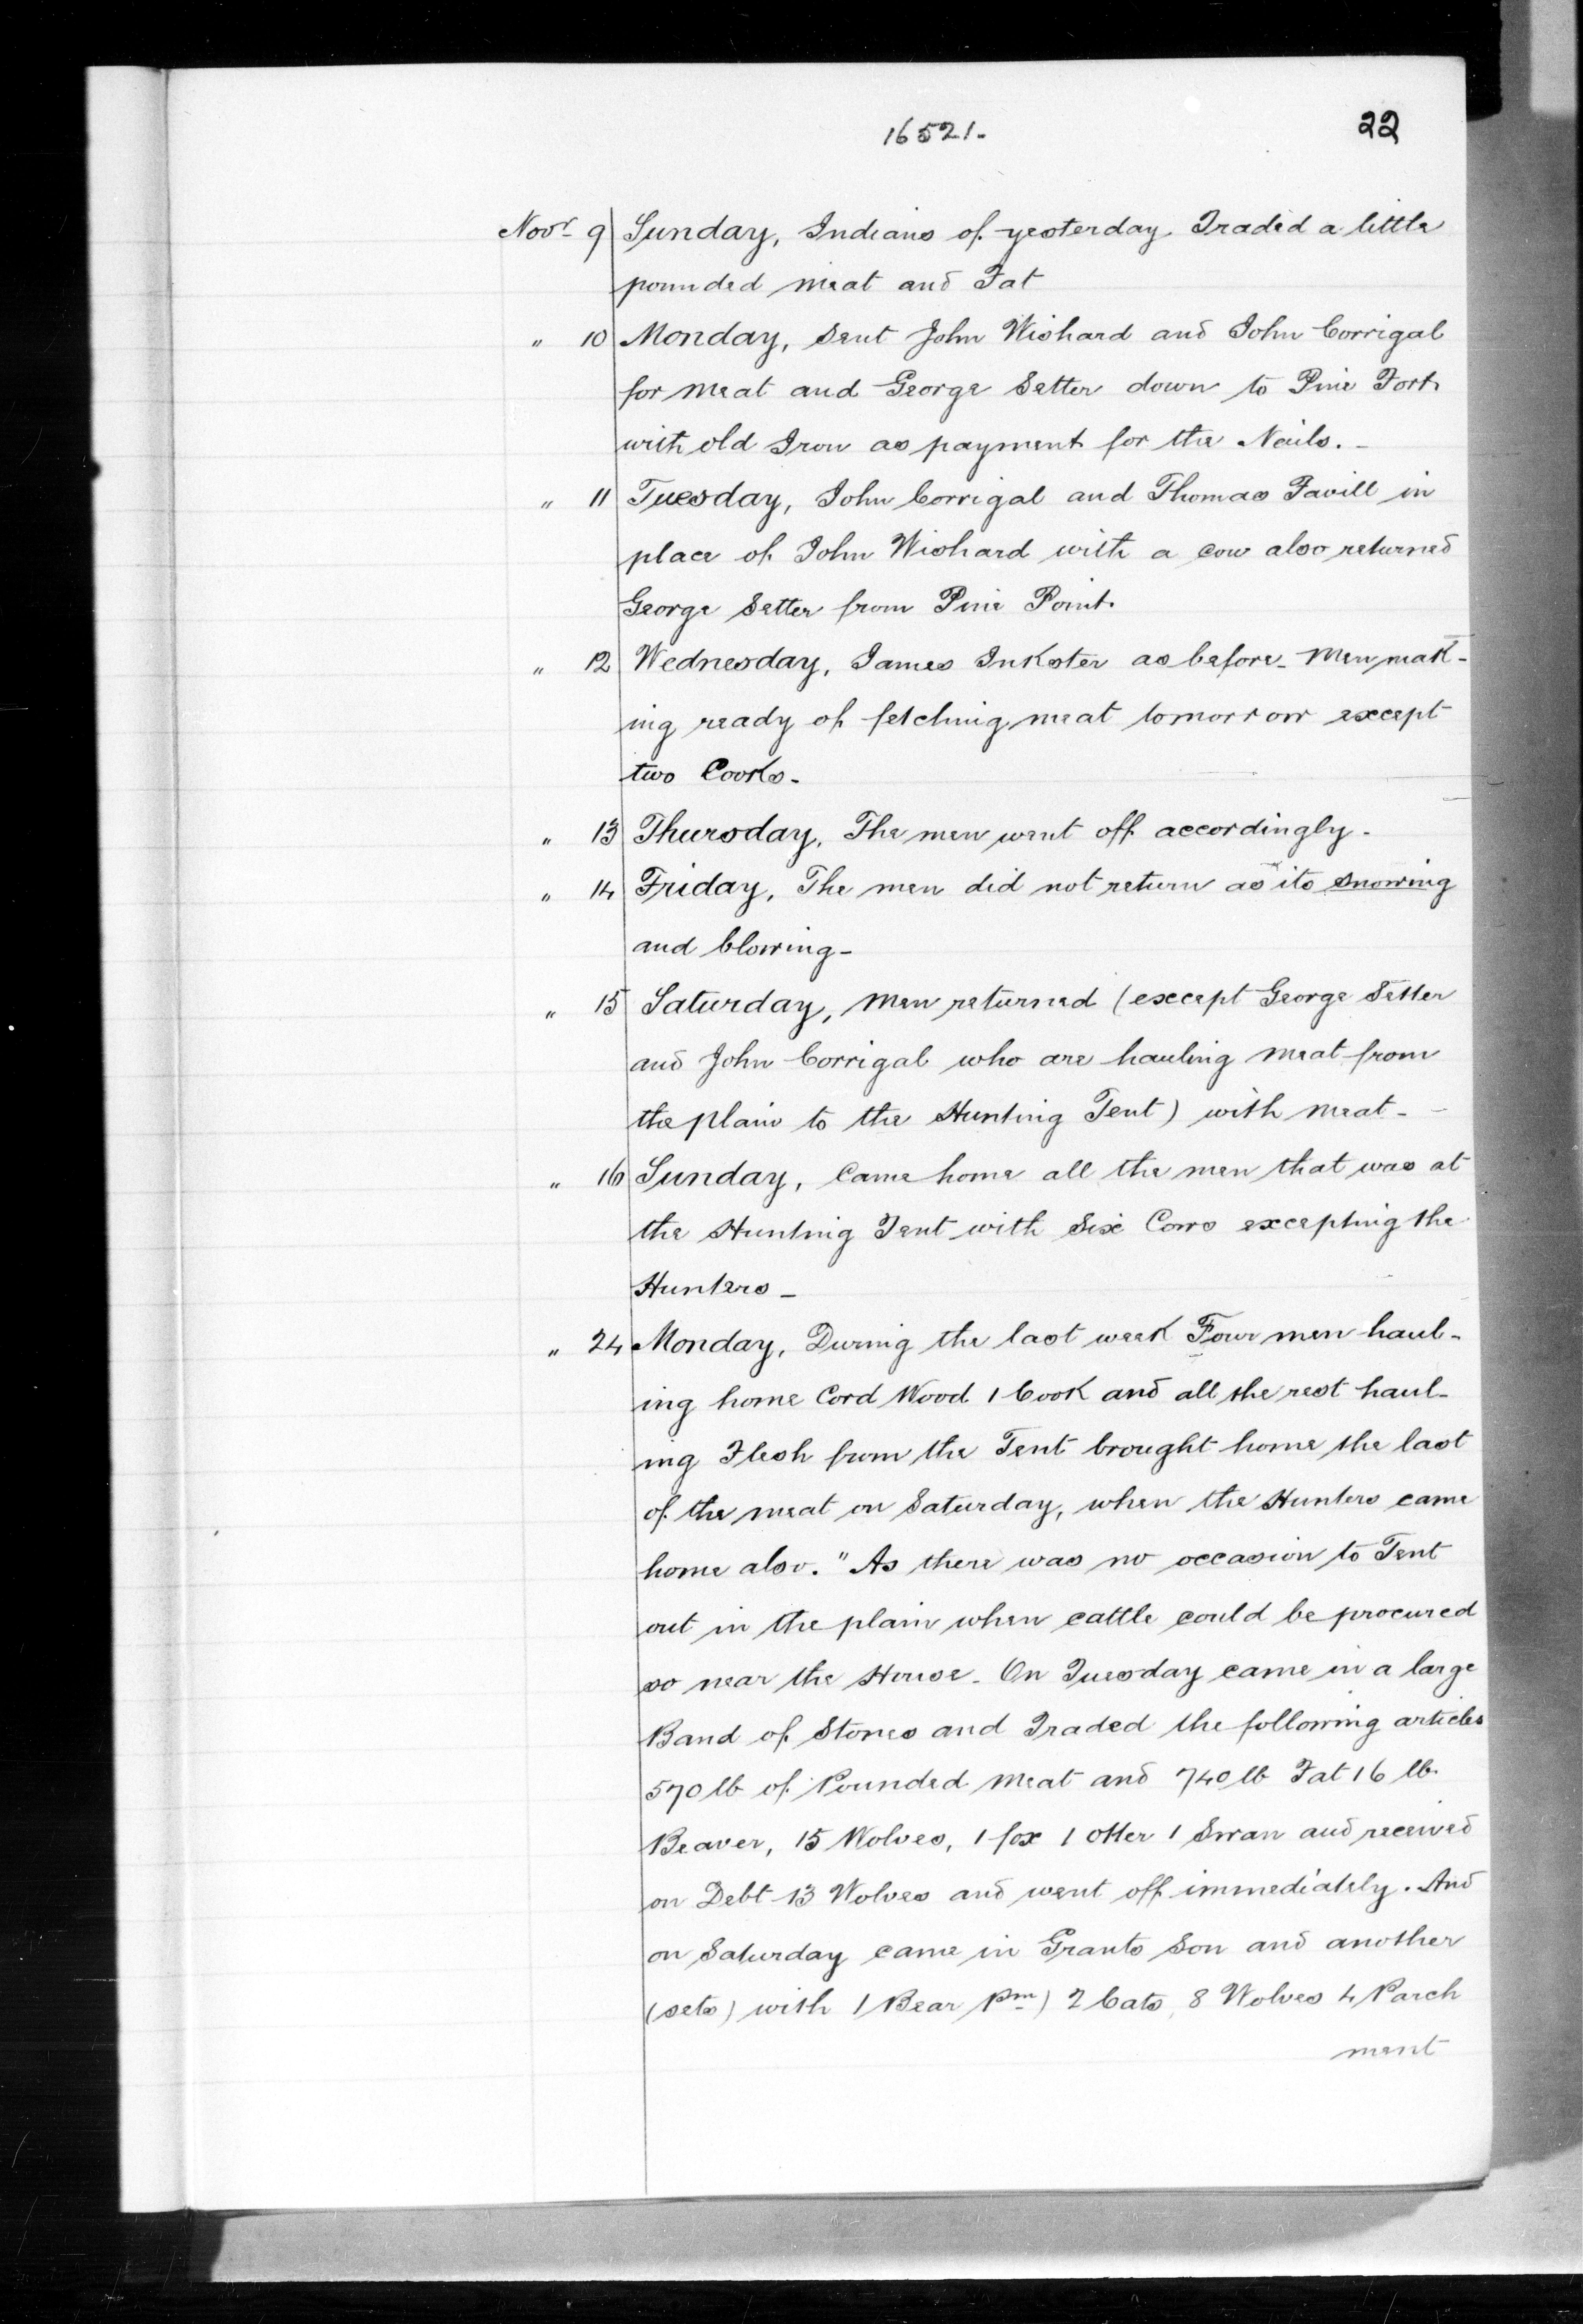 16521.
22
Novr 9 Sunday, Indians of yesterday Traded a little
pounded meat and Fat
" 10 Monday, sent John Wishard and John Corrigal
for meat and George Setter down to Pine Fort
with old Iron as payment for the Nails. -
" 11 Tuesday, John Corrigal and Thomas Favill in
place of John Wishard with a cow also returned
George Setter from Pine Point.
" 12 Wednesday, James Inkster as before - Men mak-
ing ready of fetching meat tomorrow except
two Cooks.
" 13 Thursday, The men went off accordingly -
" 14 Friday, The men did not return as its snowing
and blowing -
" 15 Saturday, Men returned (except George Setter
and John Corrigal who are hauling meat from
the plain to the Hunting Tent) with meat -
" 16 Sunday, Came home all the men that was at
the Hunting Tent with Six Cows excepting the
Hunters -
" 24 Monday, During the last week Four men haul-
ing home Cord Wood 1 Cook and all the rest haul-
ing Flesh from the Tent brought home the last
of the meat on Saturday, when the Hunters came
home also. "As there was no occasion to Tent
out in the plain when cattle could be procured
so near the House - On Tuesday came in a large
Band of Stones and Traded the following articles
570 lb of Pounded meat and 740 lb Fat 16 lb
Beaver, 15 Wolves, 1 fox 1 Otter 1 Swan and received
on Debt 13 Wolves and went off immediately. And
on Saturday came in Grants Son and another
(sets) with 1 Bear Pm) 2 Cats, 8 Wolves 4 Parch
ment